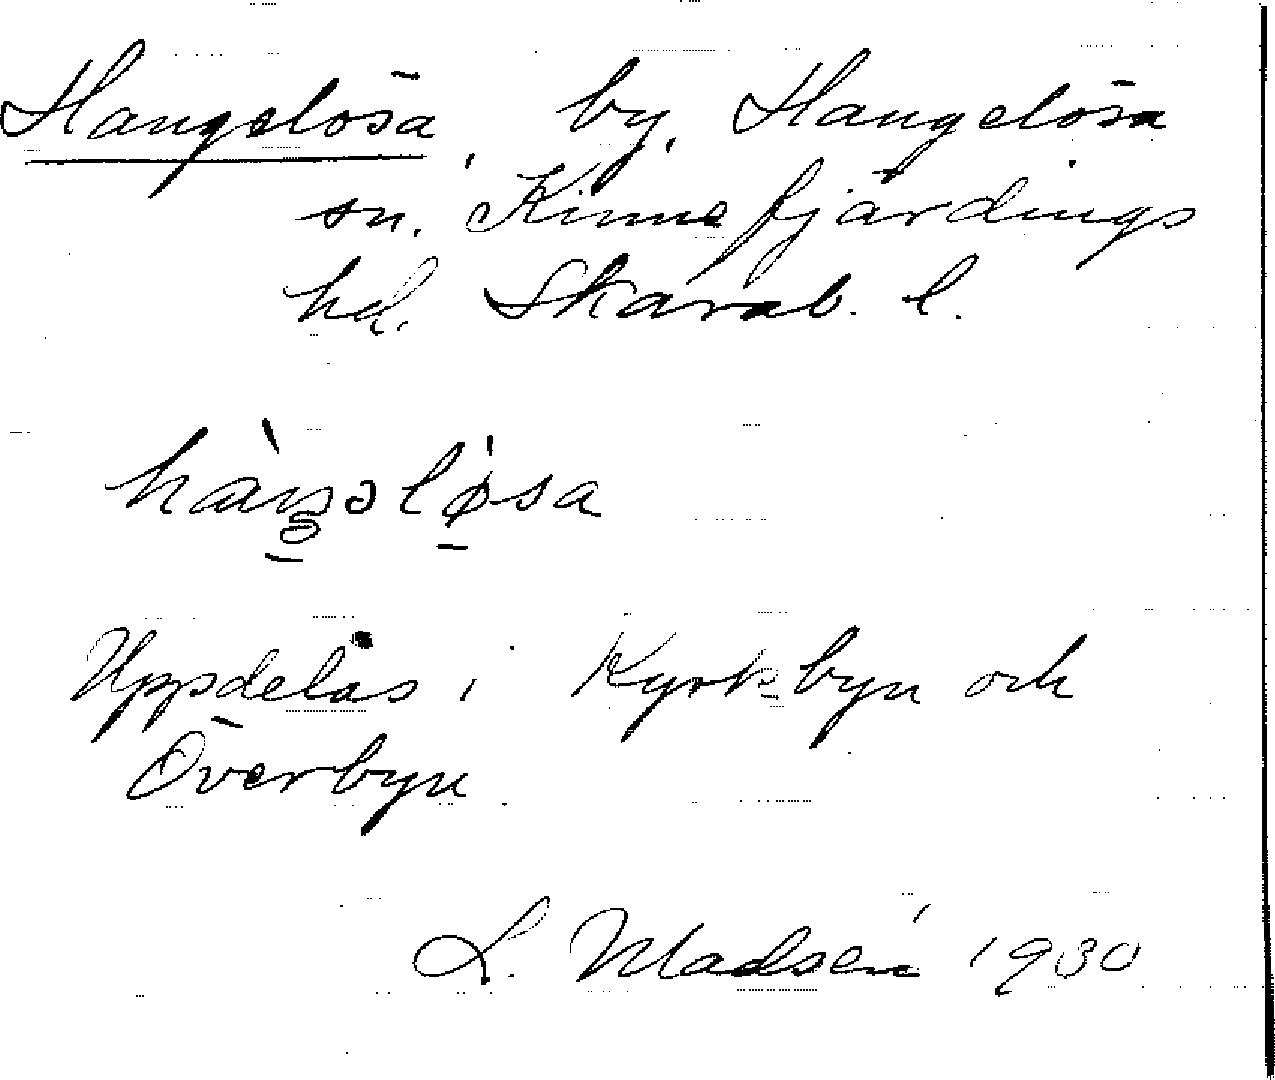 Hangelösa, by, Hangelösa
sn. Kinnefjärdings
hd. Skarab. l.
hàŋəløsa
Uppdelas i Kyrkbyn och
Överbyn
L. Madsén 1930